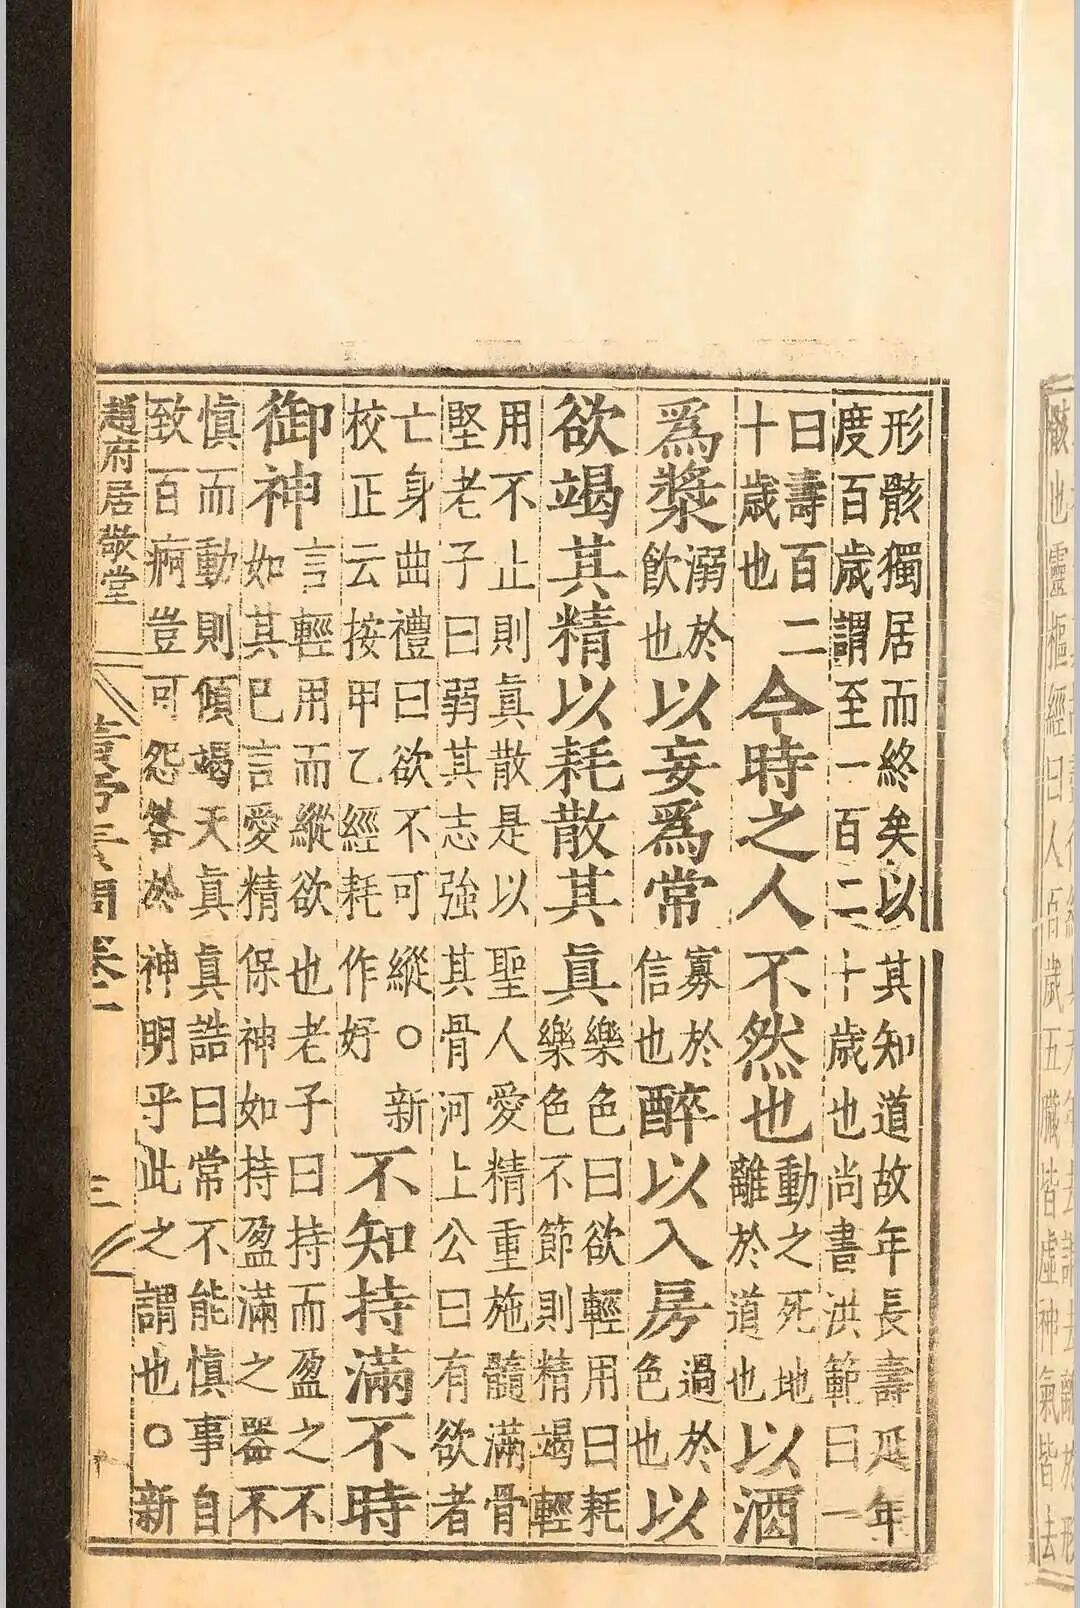 骸也靈樞經曰人百歲五臟皆虛神氣皆去
形骸獨居而終矣以其知道故年長壽延年
度百歲謂至一百二十歲也尚書洪範曰一
曰壽百二
十歲也
今時之人不然也
動之死地
離於道也
以酒
爲漿
溺於
飲也
以妄爲常
寡於
信也
醉以入房
過於
色也
以
欲竭其精以耗散其真
樂色曰欲輕用曰耗
樂色不節則精竭輕
用不止則真散是以聖人愛精重施髓滿骨
堅老子曰弱其志強其骨河上公曰有欲者
亡身曲禮曰欲不可縱○新
校正云按甲乙經耗作好
不知持滿不時
御神
言輕用而縱欲也老子曰持而盈之不
如其巳言愛精保神如持盈滿之器不
慎而動則傾竭天真真誥曰常不能慎事自
致百痾豈可怨咎於神明乎此之謂也○新
趙府居敬堂
黃帝素問卷一
三